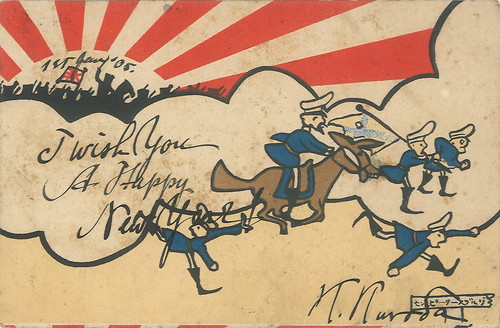 1st Jany '05.
I wish You
A Happy
New Year!